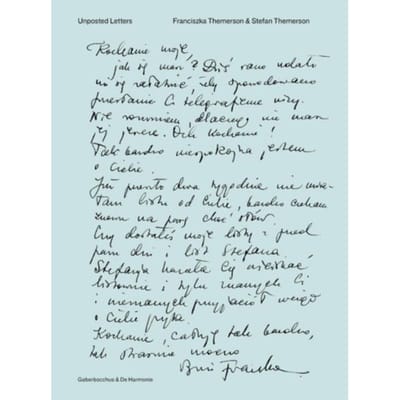 Unposted Letters
Franciszka Themerson & Stefan Themerson
Kochanie moje,
jak się masz? Dziś rano udało
mi się załatwić, żeby spowodowano
przesłanie Ci telegrafem wizy.
Nie rozumiem, dlaczego nie masz
jej jeszcze. Och kochanie!
Tak bardzo niespokojna jestem
o Ciebie.
Już prawie dwa tygodnie nie
listu od Ciebie, bardzo czekam
znowu na parę choć słów.
Czy dostałeś moje listy z przed
paru dni i list Stefana,
Stefania kazała Cię
i tylu znanych Ci
i nieznanych przyjaciół wciąż
o Ciebie pyta.
Kochanie, całuję tak bardzo,
tak strasznie mocno
Franka
Gaberbocchus & De Harmonie